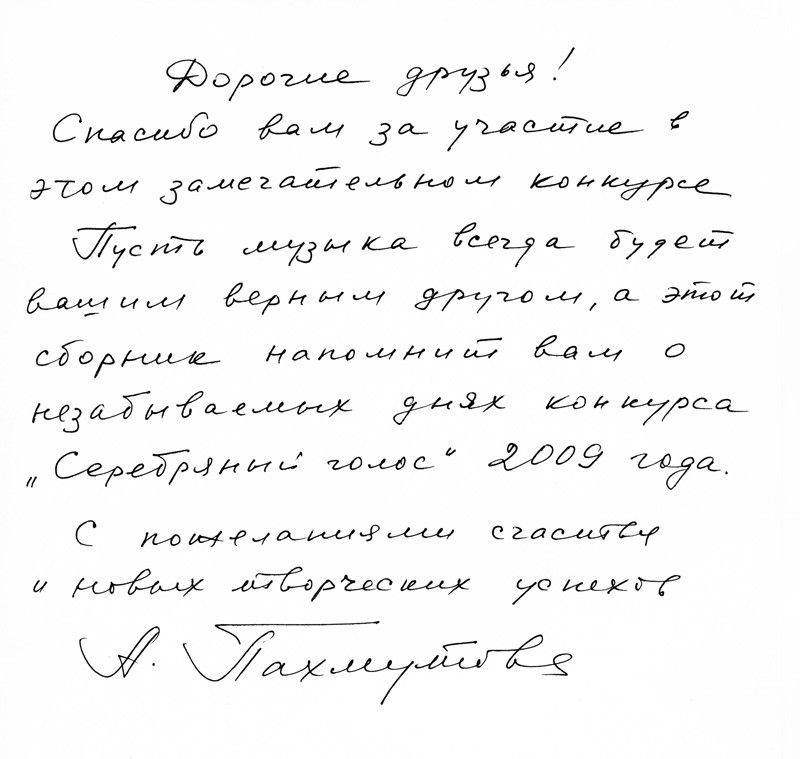 Дорогие друзья!
Спасибо вам за участие в
этом замечательном конкурсе
Пусть музыка всегда будет
вашим верным другом, а этот
сборник напомнит вам о
незабываемых днях конкурса
„Серебряный голос“ 2009 года.
С пожеланиями счастья
и новых творческих успехов
А. Пахмутова